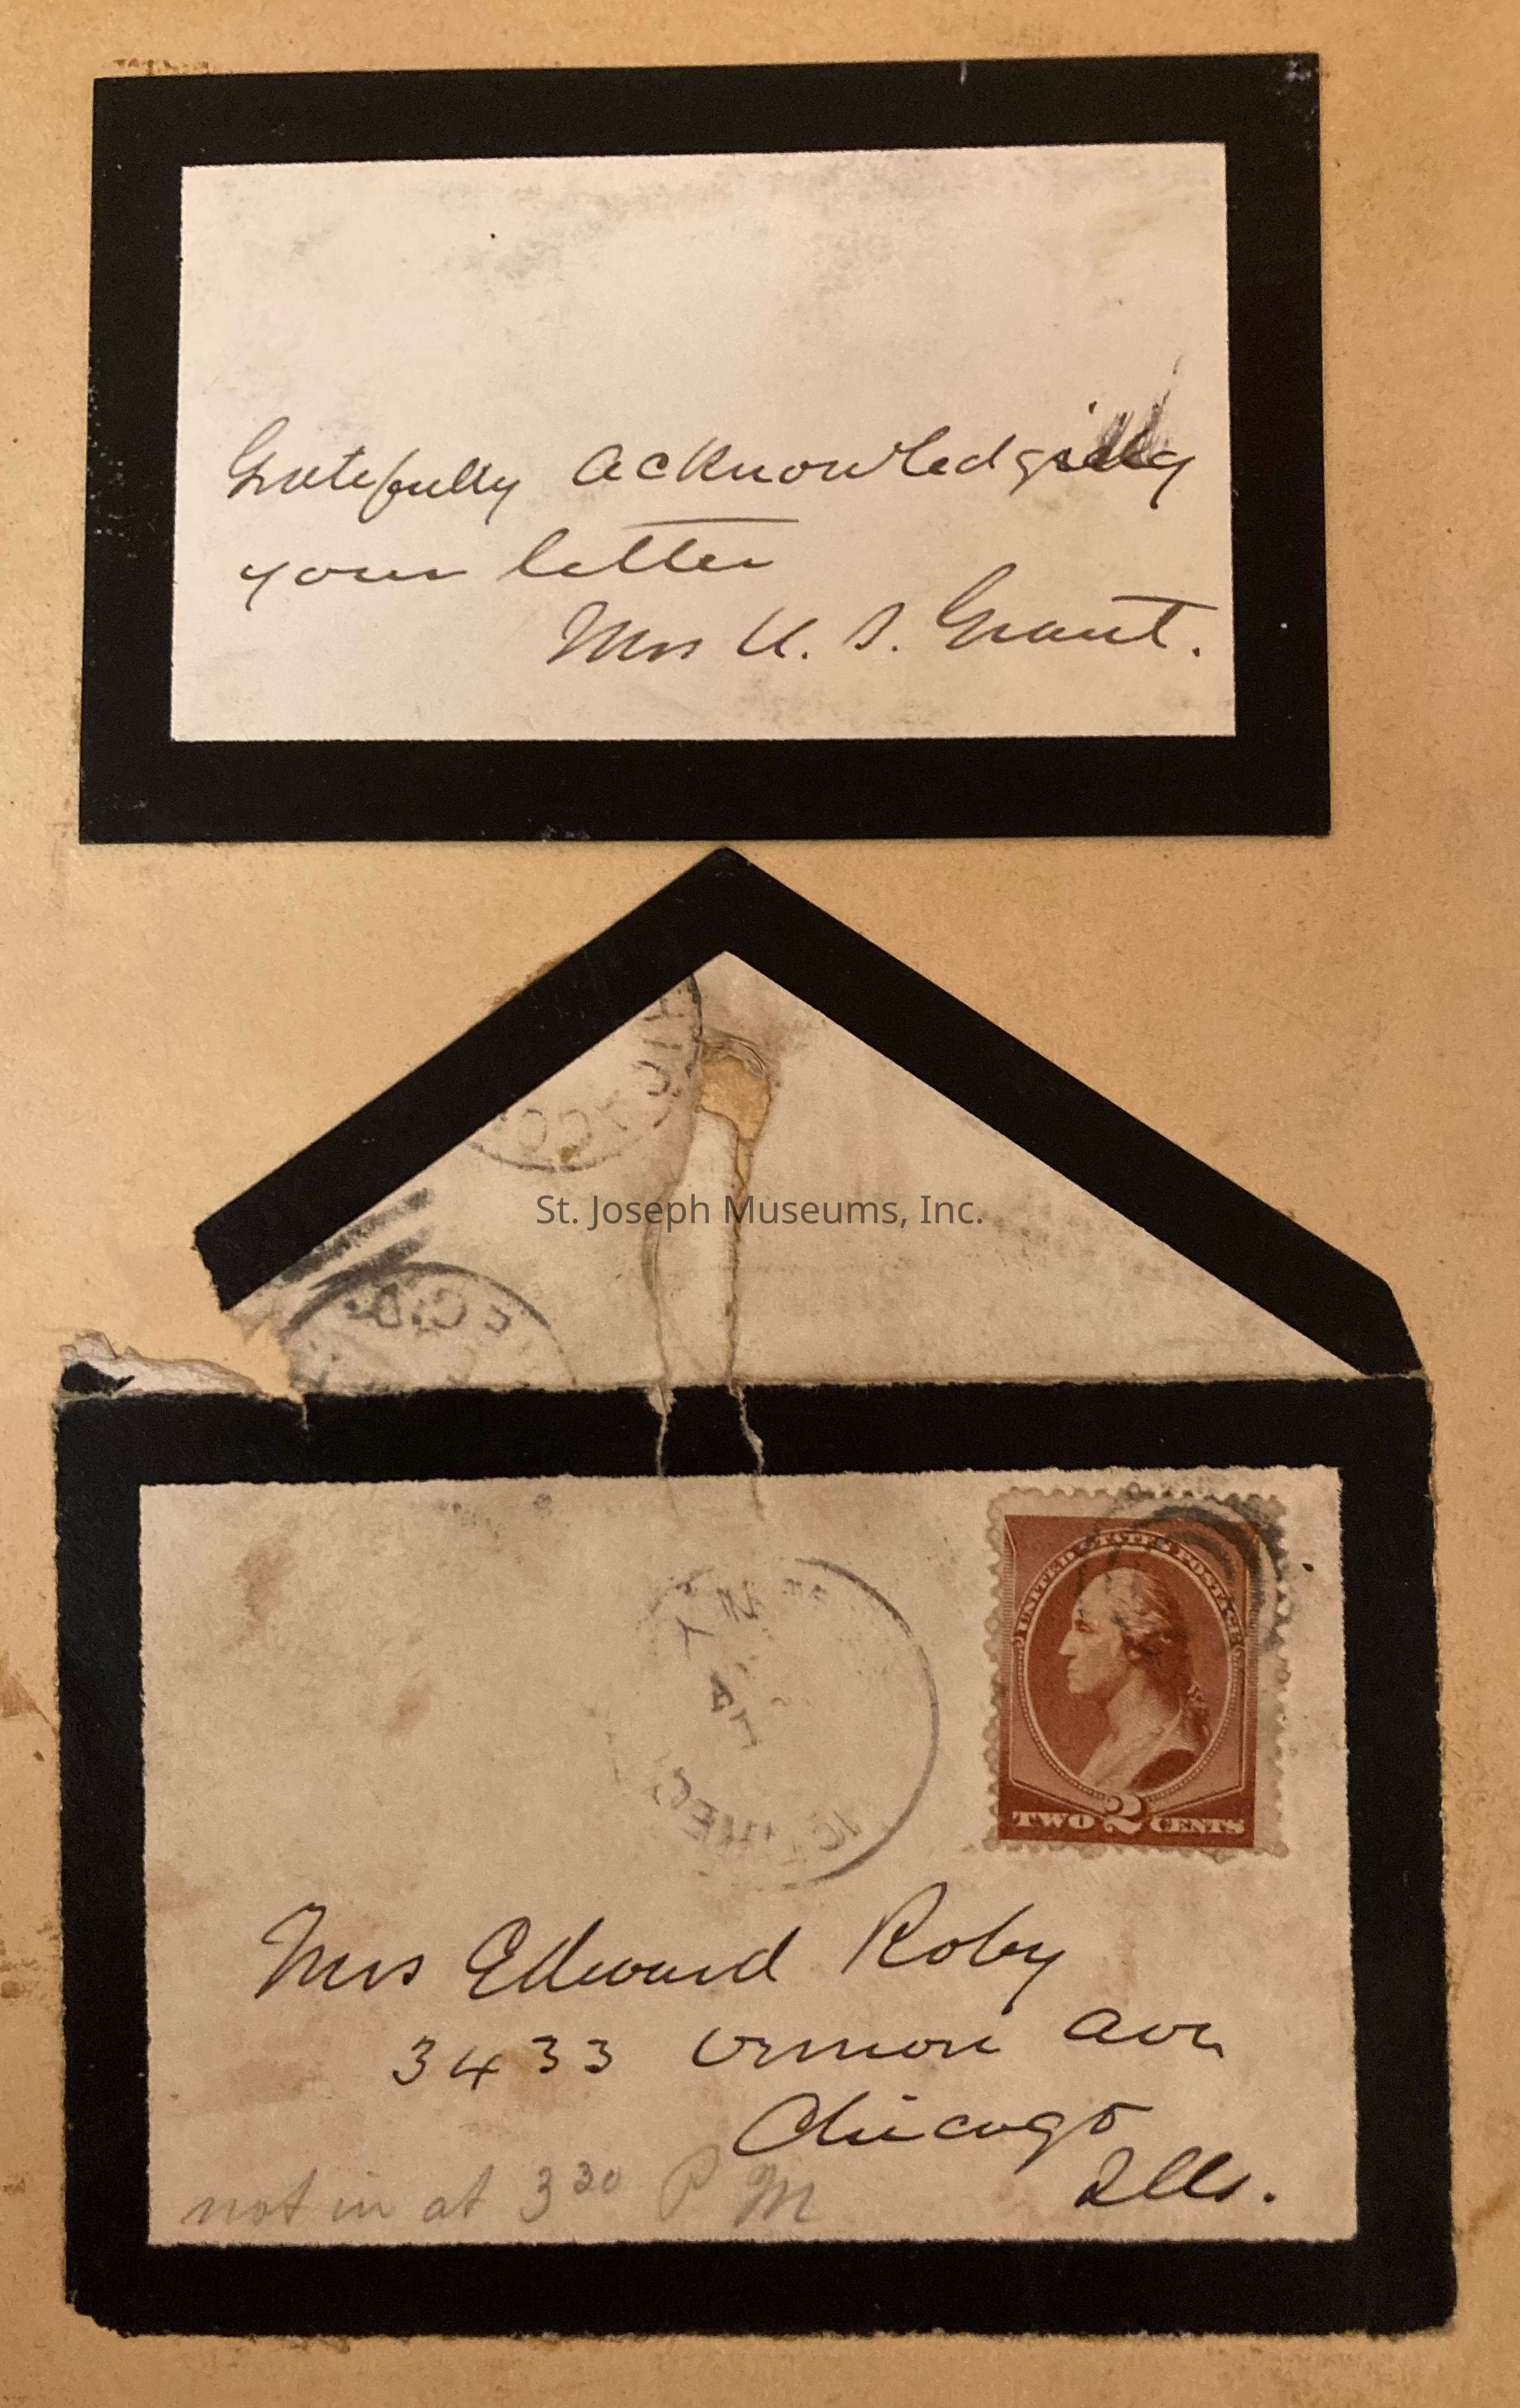 Gratefully acknowledging
your letter
Mrs U. S. Grant.
REC'D.
St. Joseph Museums, Inc.
UNITED STATES POSTAGE
TWO 2 CENTS
Mrs Edward Roby
3433 Ave
Chicago
Ills.
not in at 3 30 P M